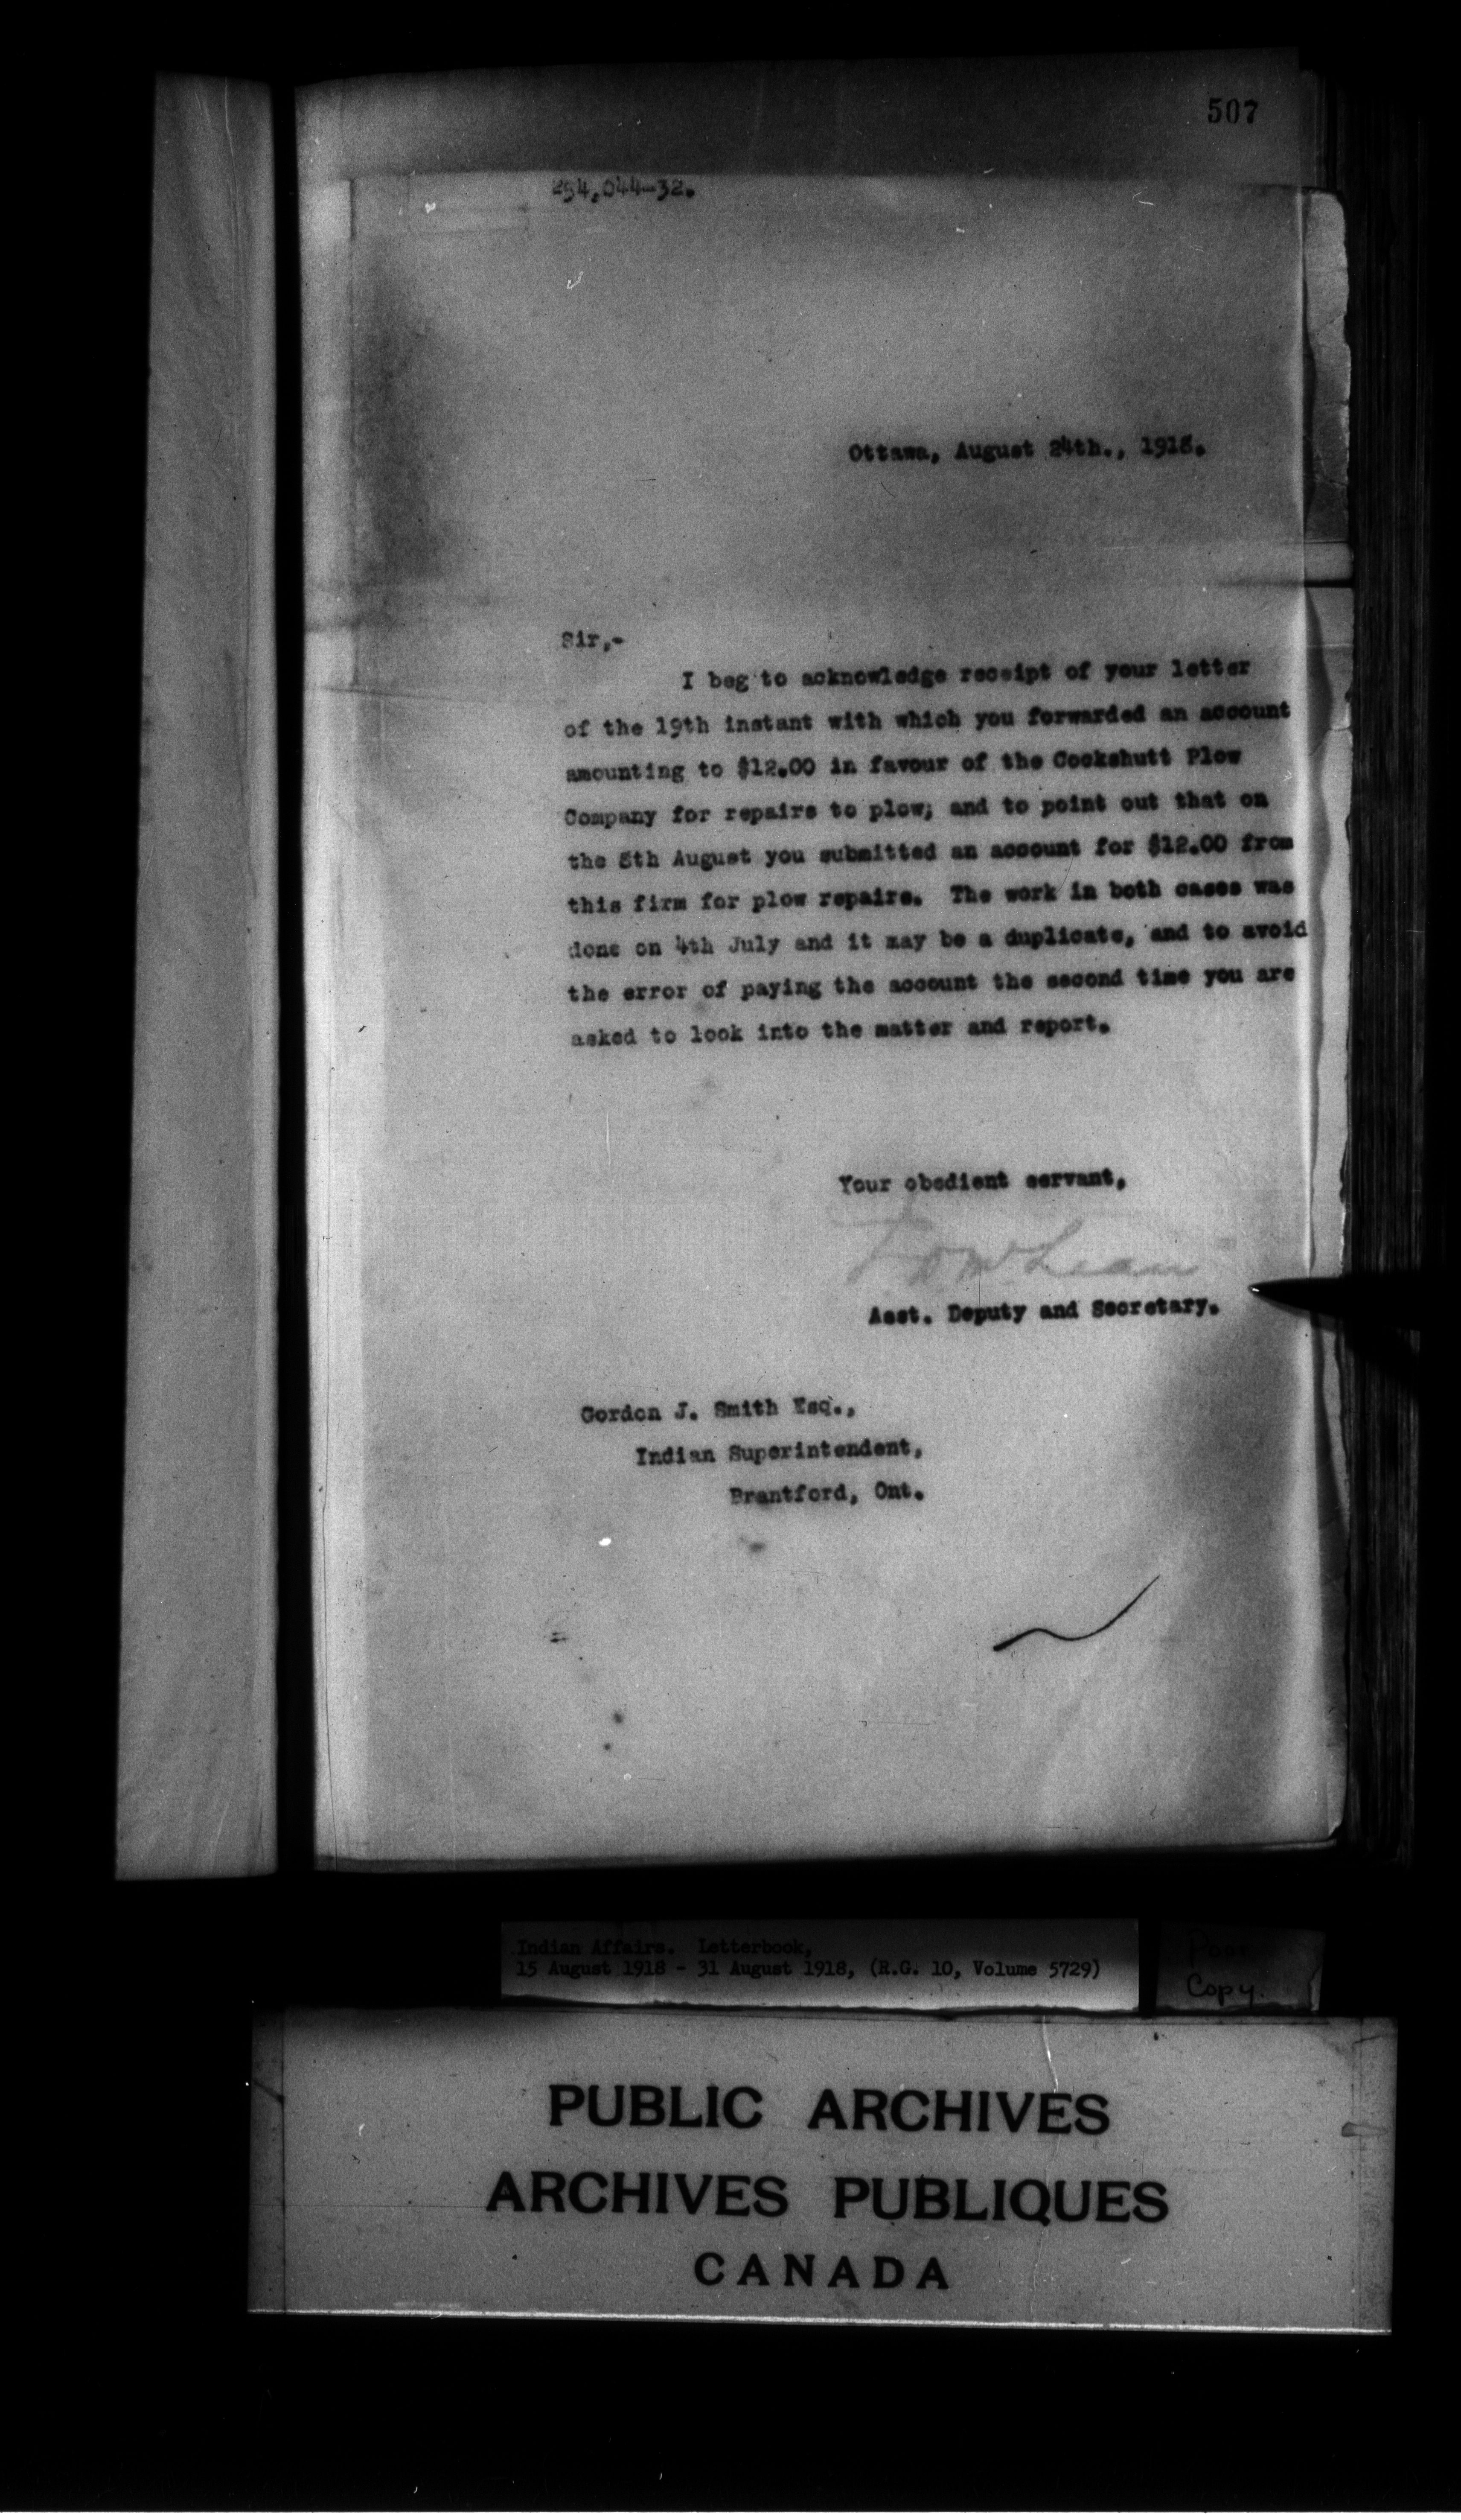 507
254,044-32.
Ottawa, August 24th., 1918.
Sir,-
I beg to acknowledge receipt of your letter
of the 19th instant with which you forwarded an account
amounting to $12.00 in favour of the Cockshutt Plow
Company for repairs to plow; and to point out that on
the 8th August you submitted an account for $12.00 from
this firm for plow repairs. The work in both cases was
done on 4th July and it may be a duplicate, and to avoid
the error of paying the account the second time you are
asked to look into the matter and report.
Your obedient servant,
Asst. Deputy and Secretary.
Gordon J. Smith Esq.,
Indian Superintendent,
Brantford, Ont.
Indian Affairs. Letterbook,
15 August 1918 - 31 August 1918, (R.G. 10, Volume 5729)
Poor
Copy.
PUBLIC ARCHIVES
ARCHIVES PUBLIQUES
CANADA